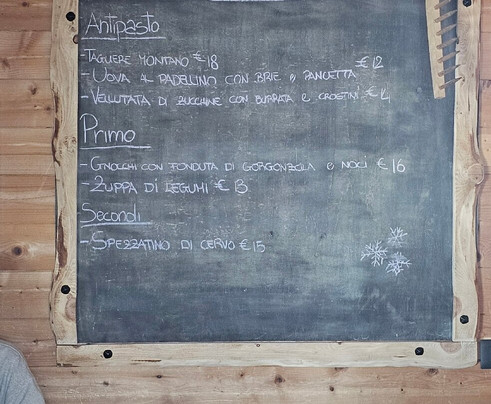 Antipasto
-TAGLIERE MONTANO €18
- UOVA AL PADELLINO CON BRIE e PANCETTA €12
- VELLUTATA DI ZUCCHINE CON BURRATA E CROSTINI €
Primo
- GNOCCHI CON FONDUTA DI GORGONZOLA e NOCI €16
- ZUPPA DI LEGUMI € 13
Secondi
- SPEZZATINO DI CERVO €15